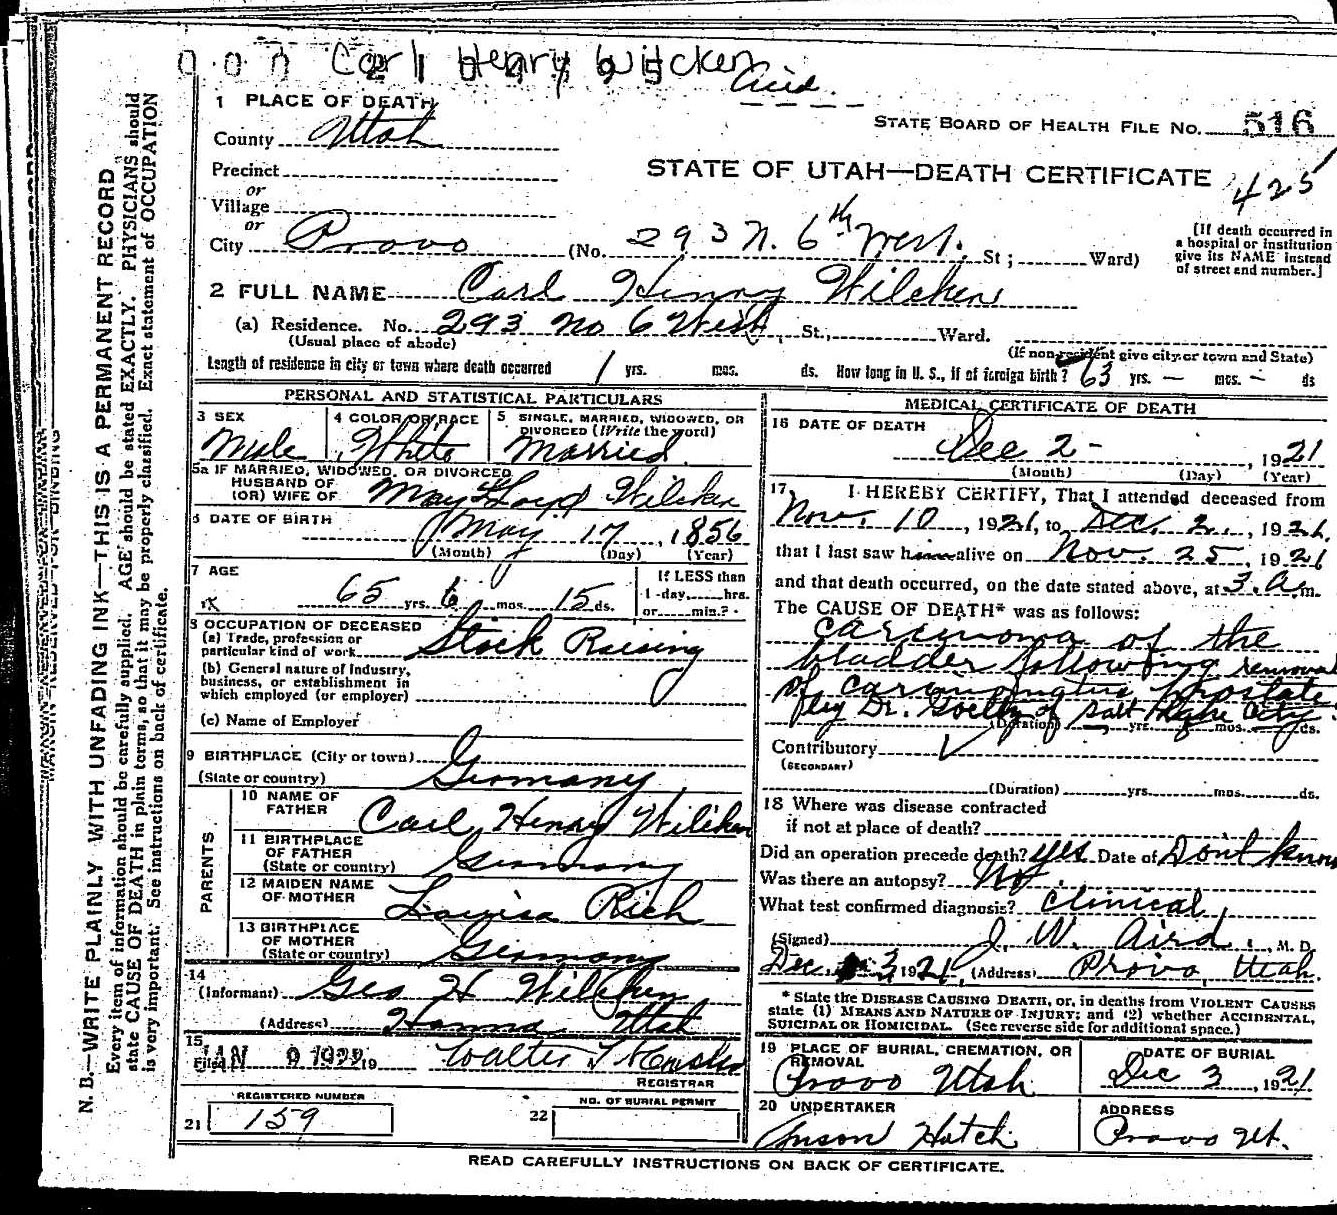 Carl Henry Wilcken
Aird.
1 PLACE OF DEATH
County Utah
STATE BOARD OF HEALTH FILE No. 516
Precinct
STATE OF UTAH—DEATH CERTIFICATE
425
or
Village
or
City Provo (No. 293 N. 6th West. St; Ward)
[If death occurred in
a hospital or institution
give its NAME instead
of street and number.]
2 FULL NAME Carl Henry Wilcken
(a) Residence. No. 293 No 6 West, St., Ward.
(Usual place of abode)
(If non-resident give city or town and State)
Length of residence in city or town where death occurred 1 yrs. mos. ds. How long in U. S., if of foreign birth? 63 yrs. — mos. — ds
PERSONAL AND STATISTICAL PARTICULARS
3 SEX
Male
4 COLOR OR RACE
White
5 SINGLE, MARRIED, WIDOWED, OR
DIVORCED (Write the word)
Married
5a IF MARRIED, WIDOWED, OR DIVORCED
HUSBAND OF
(OR) WIFE OF May Wilcken
6 DATE OF BIRTH
May 17, 1856
(Month) (Day) (Year)
7 AGE
65 yrs. 6 mos. 15 ds.
If LESS than
1 day, hrs.
or min.?
8 OCCUPATION OF DECEASED
(a) Trade, profession or
particular kind of work Stock Raising
(b) General nature of Industry,
business, or establishment in
which employed (or employer)
(c) Name of Employer
9 BIRTHPLACE (City or town)
(State or country) Germany
PARENTS
10 NAME OF
FATHER Carl Henry Wilcken
11 BIRTHPLACE
OF FATHER
(State or country) Germany
12 MAIDEN NAME
OF MOTHER Louisa Rich
13 BIRTHPLACE
OF MOTHER
(State or country) Germany
14
(Informant) Geo H Wilcken
(Address) Hanna Utah
15
Filed JAN 9 1922 19 Walter T
REGISTRAR
REGISTERED NUMBER
21 159
NO. OF BURIAL PERMIT
22
MEDICAL CERTIFICATE OF DEATH
16 DATE OF DEATH
Dec 2 - , 1921
(Month) (Day) (Year)
17 I HEREBY CERTIFY, That I attended deceased from
Nov. 10, 1921, to Dec. 2., 1921,
that I last saw him alive on Nov. 25, 1921
and that death occurred, on the date stated above, at 3. A m.
The CAUSE OF DEATH* was as follows:
Carcinoma of the
bladder following removal
of carcinomatus prostate
by Dr. of Salt Lake City.
(Duration) yrs. mos. ds.
Contributory
(SECONDARY)
(Duration) yrs. mos. ds.
18 Where was disease contracted
if not at place of death?
Did an operation precede death? yes Date of Dont know
Was there an autopsy? No.
What test confirmed diagnosis? Clinical
(Signed) J. W. Aird, M. D.
Dec 3, 1921. (Address) Provo, Utah.
* State the DISEASE CAUSING DEATH, or, in deaths from VIOLENT CAUSES
state (1) MEANS AND NATURE OF INJURY; and (2) whether ACCIDENTAL,
SUICIDAL or HOMICIDAL. (See reverse side for additional space.)
19 PLACE OF BURIAL, CREMATION, OR
REMOVAL
Provo Utah
DATE OF BURIAL
Dec 3, 1921
20 UNDERTAKER
Anson Hatch
ADDRESS
Provo Ut.
READ CAREFULLY INSTRUCTIONS ON BACK OF CERTIFICATE.
N. B.—WRITE PLAINLY WITH UNFADING INK—THIS IS A PERMANENT RECORD
Every item of information should be carefully supplied. AGE should be stated EXACTLY. PHYSICIANS should
state CAUSE OF DEATH in plain terms, so that it may be properly classified. Exact statement of OCCUPATION
is very important. See instructions on back of certificate.
MARGIN RESERVED FOR BINDING